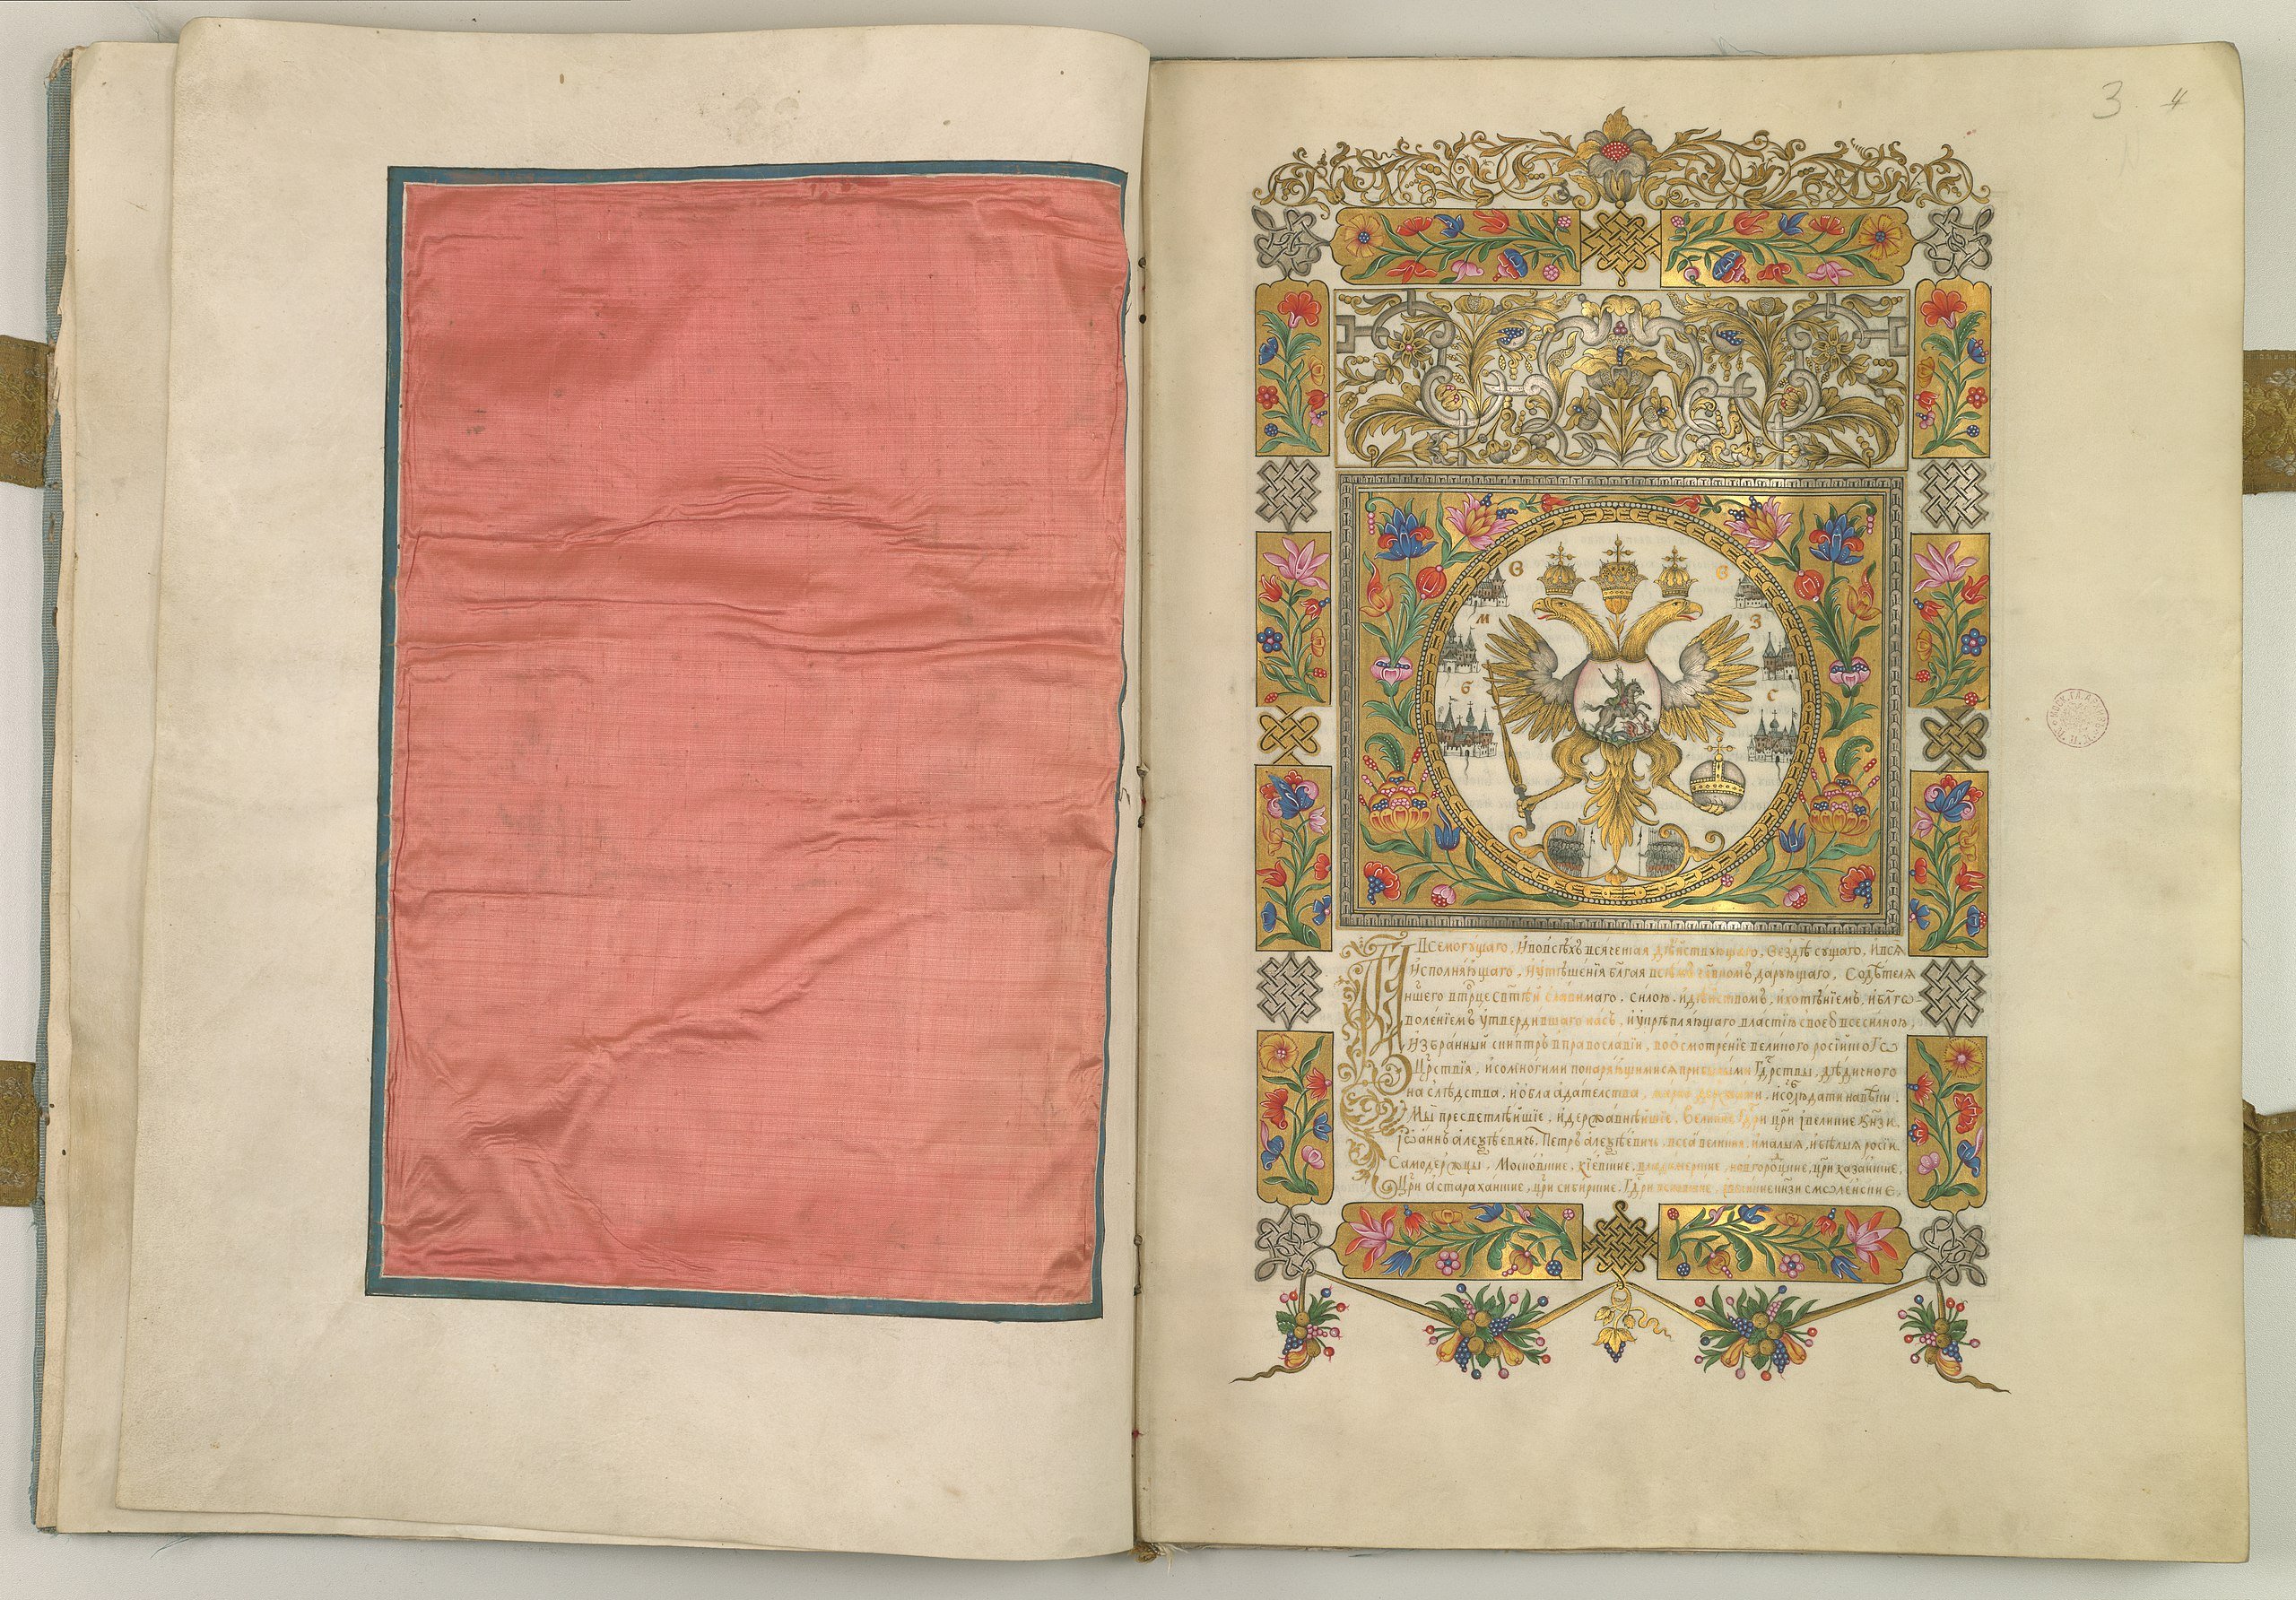 3. 4
Е Е
М З
Б С
Всемогущаго, и во всѣхъ всяческая дѣйствующаго, вездѣ сущаго, и вся
исполняющаго, и утѣшения благая всѣмъ дарующаго, Содѣтеля
ншего в трце
силою, и дѣйствомъ, и хотѣниемъ, и блго
волениемъ утвердившаго насъ, и укрѣпляющаго властию своею всесилною,
избранный скиптръ в православии, во осмотрение великого росийского
Црствия, и со многими покаряющимися прибылыми Гдрствы, дѣдичного
наслѣдства, и обладателства, и соблюдати навѣки.
Мы пресветлѣйшие, и державнѣйшие, великие Гдри цри и великие кнзи,
Иѡаннъ алеѯѣевичь, Петръ алеѯѣевичь, всеа великия, и малыя, и бѣлыя росии.
Самодержцы. Московские, киевские, владимерские, новгородцкие, цри казанские,
Цри астараханские, цри сибирские, Гдри псковские, и великие кнзи смоленские,